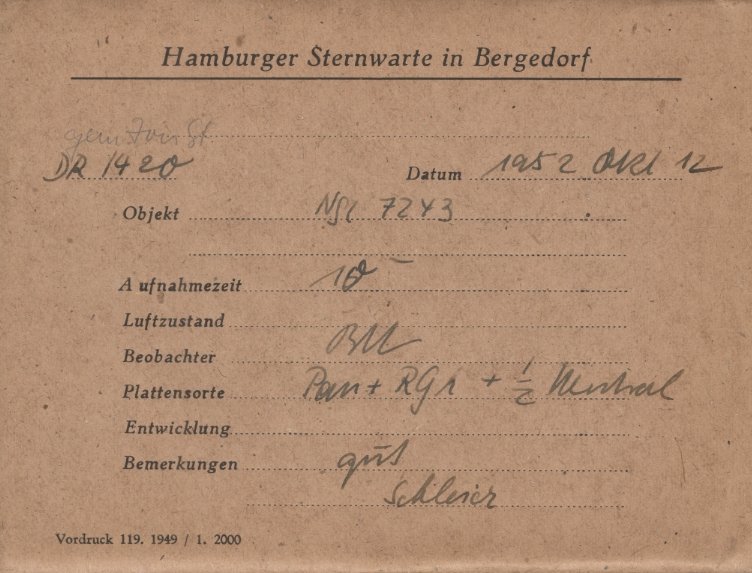 Hamburger Sternwarte in Bergedorf
DR 1420
Datum 1952 Okt 12
Objekt Ngc 7243
Aufnahmezeit 10
Luftzustand
Beobachter
Plattensorte Pan + RG1 + 1/2 Neutral
Entwicklung
Bemerkungen gut
Schleier
Vordruck 119. 1949 / 1. 2000